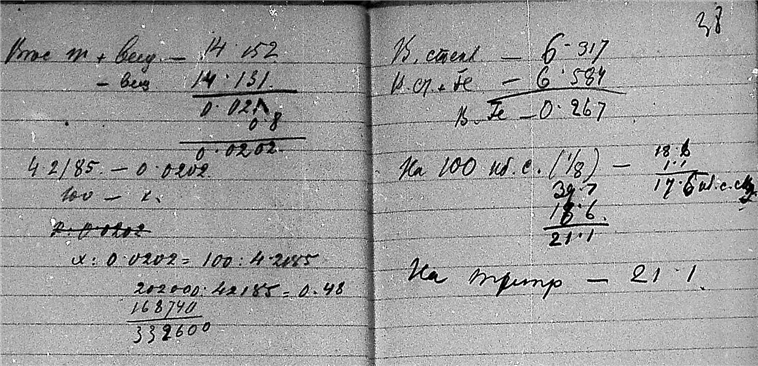 m + вещ. — 14·152
— вещ 14·131
0·021
0·8
0·0202
4·2185 — 0·0202
100 — x.
x : 0·0202 = 100 : 4·2185
202000 : 42185 = 0·48
168740
332600
38
В. стекл — 6·317
В. ст + Fe — 6·584
В. Fe — 0·267
На 100 кб. с. (1/8) — 18·6
1·1
17·6 кб. с.
39·7
18·6
21·1
На титр — 21·1.